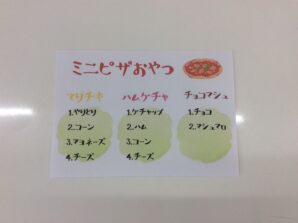 ミニピザおやつ
マリチキ
1.やりとり
2.コーン
3.マヨネーズ
4.チーズ
ハムケチャ
1.ケチャップ
2.ハム
3.コーン
4.チーズ
チョコマシュ
1.チョコ
2.マシュマロ